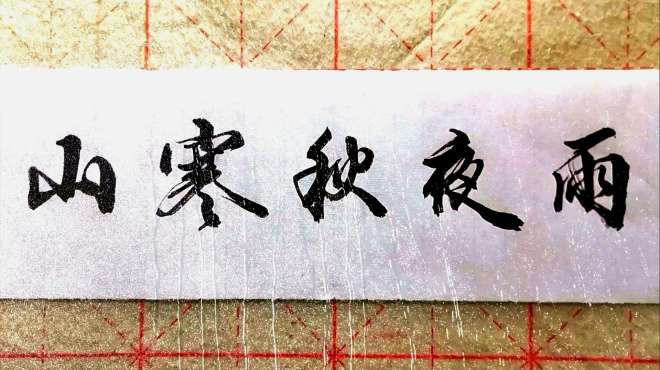 山寒秋夜雨